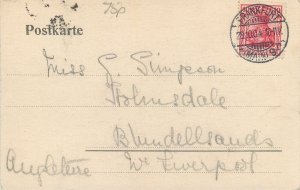 Postkarte
Miss G. Simpson
Holmsdale
Blundellsands
Angleterre
Nr Liverpool